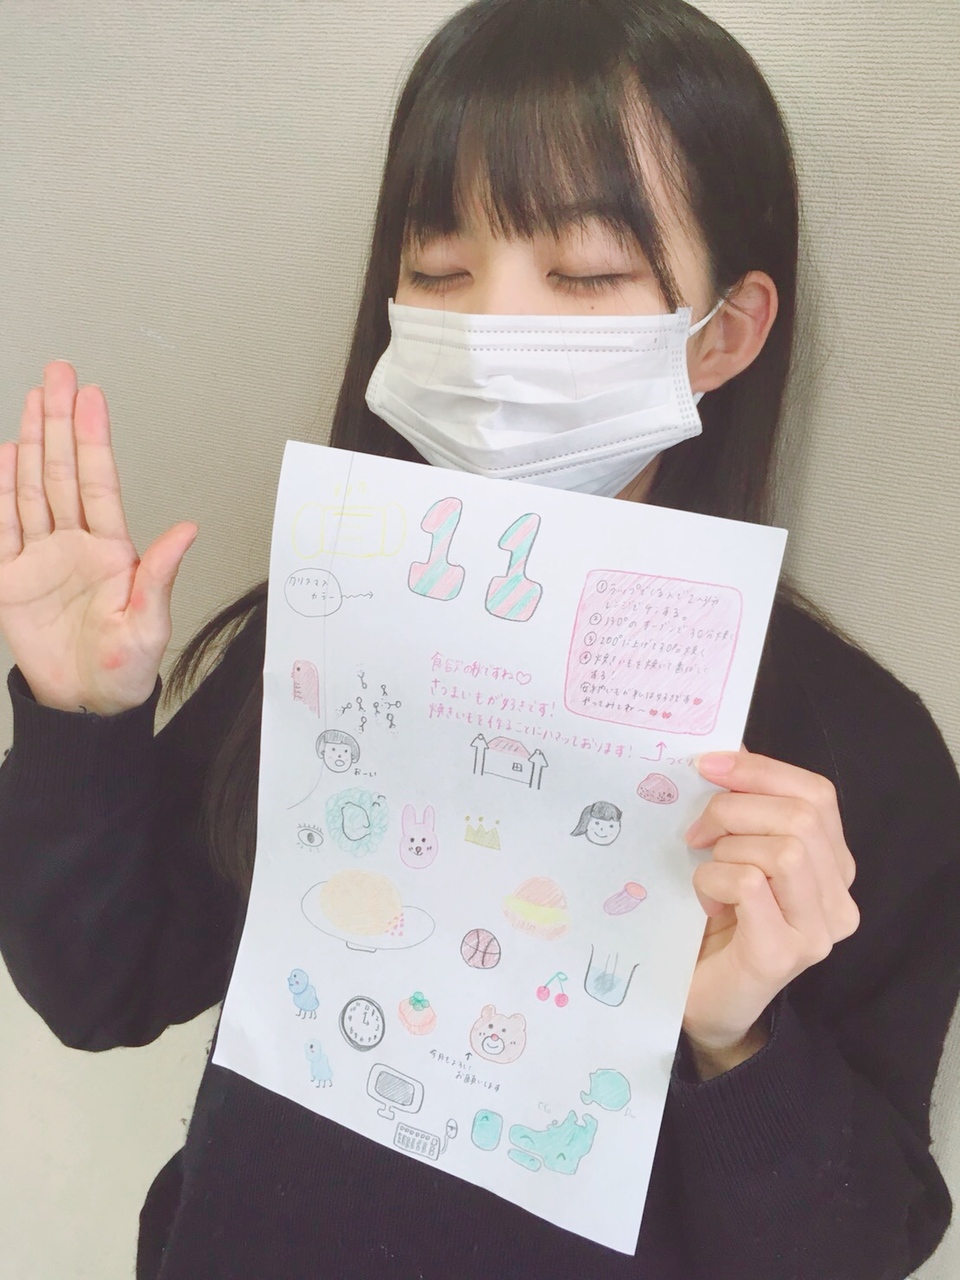 11
クリスマス
カラー
①ラップでくるんで2〜4分
レンジでチンする。
②130°のオーブンで30分焼く
③200°に上げて30分焼く
④焼きいもを焼いて
する!
やってみてね〜
食欲の秋ですね♡
さつまいもが好きです!
焼きいもを作ることにハマっております!
つくり
おーい
今月もよろしく
お願いします